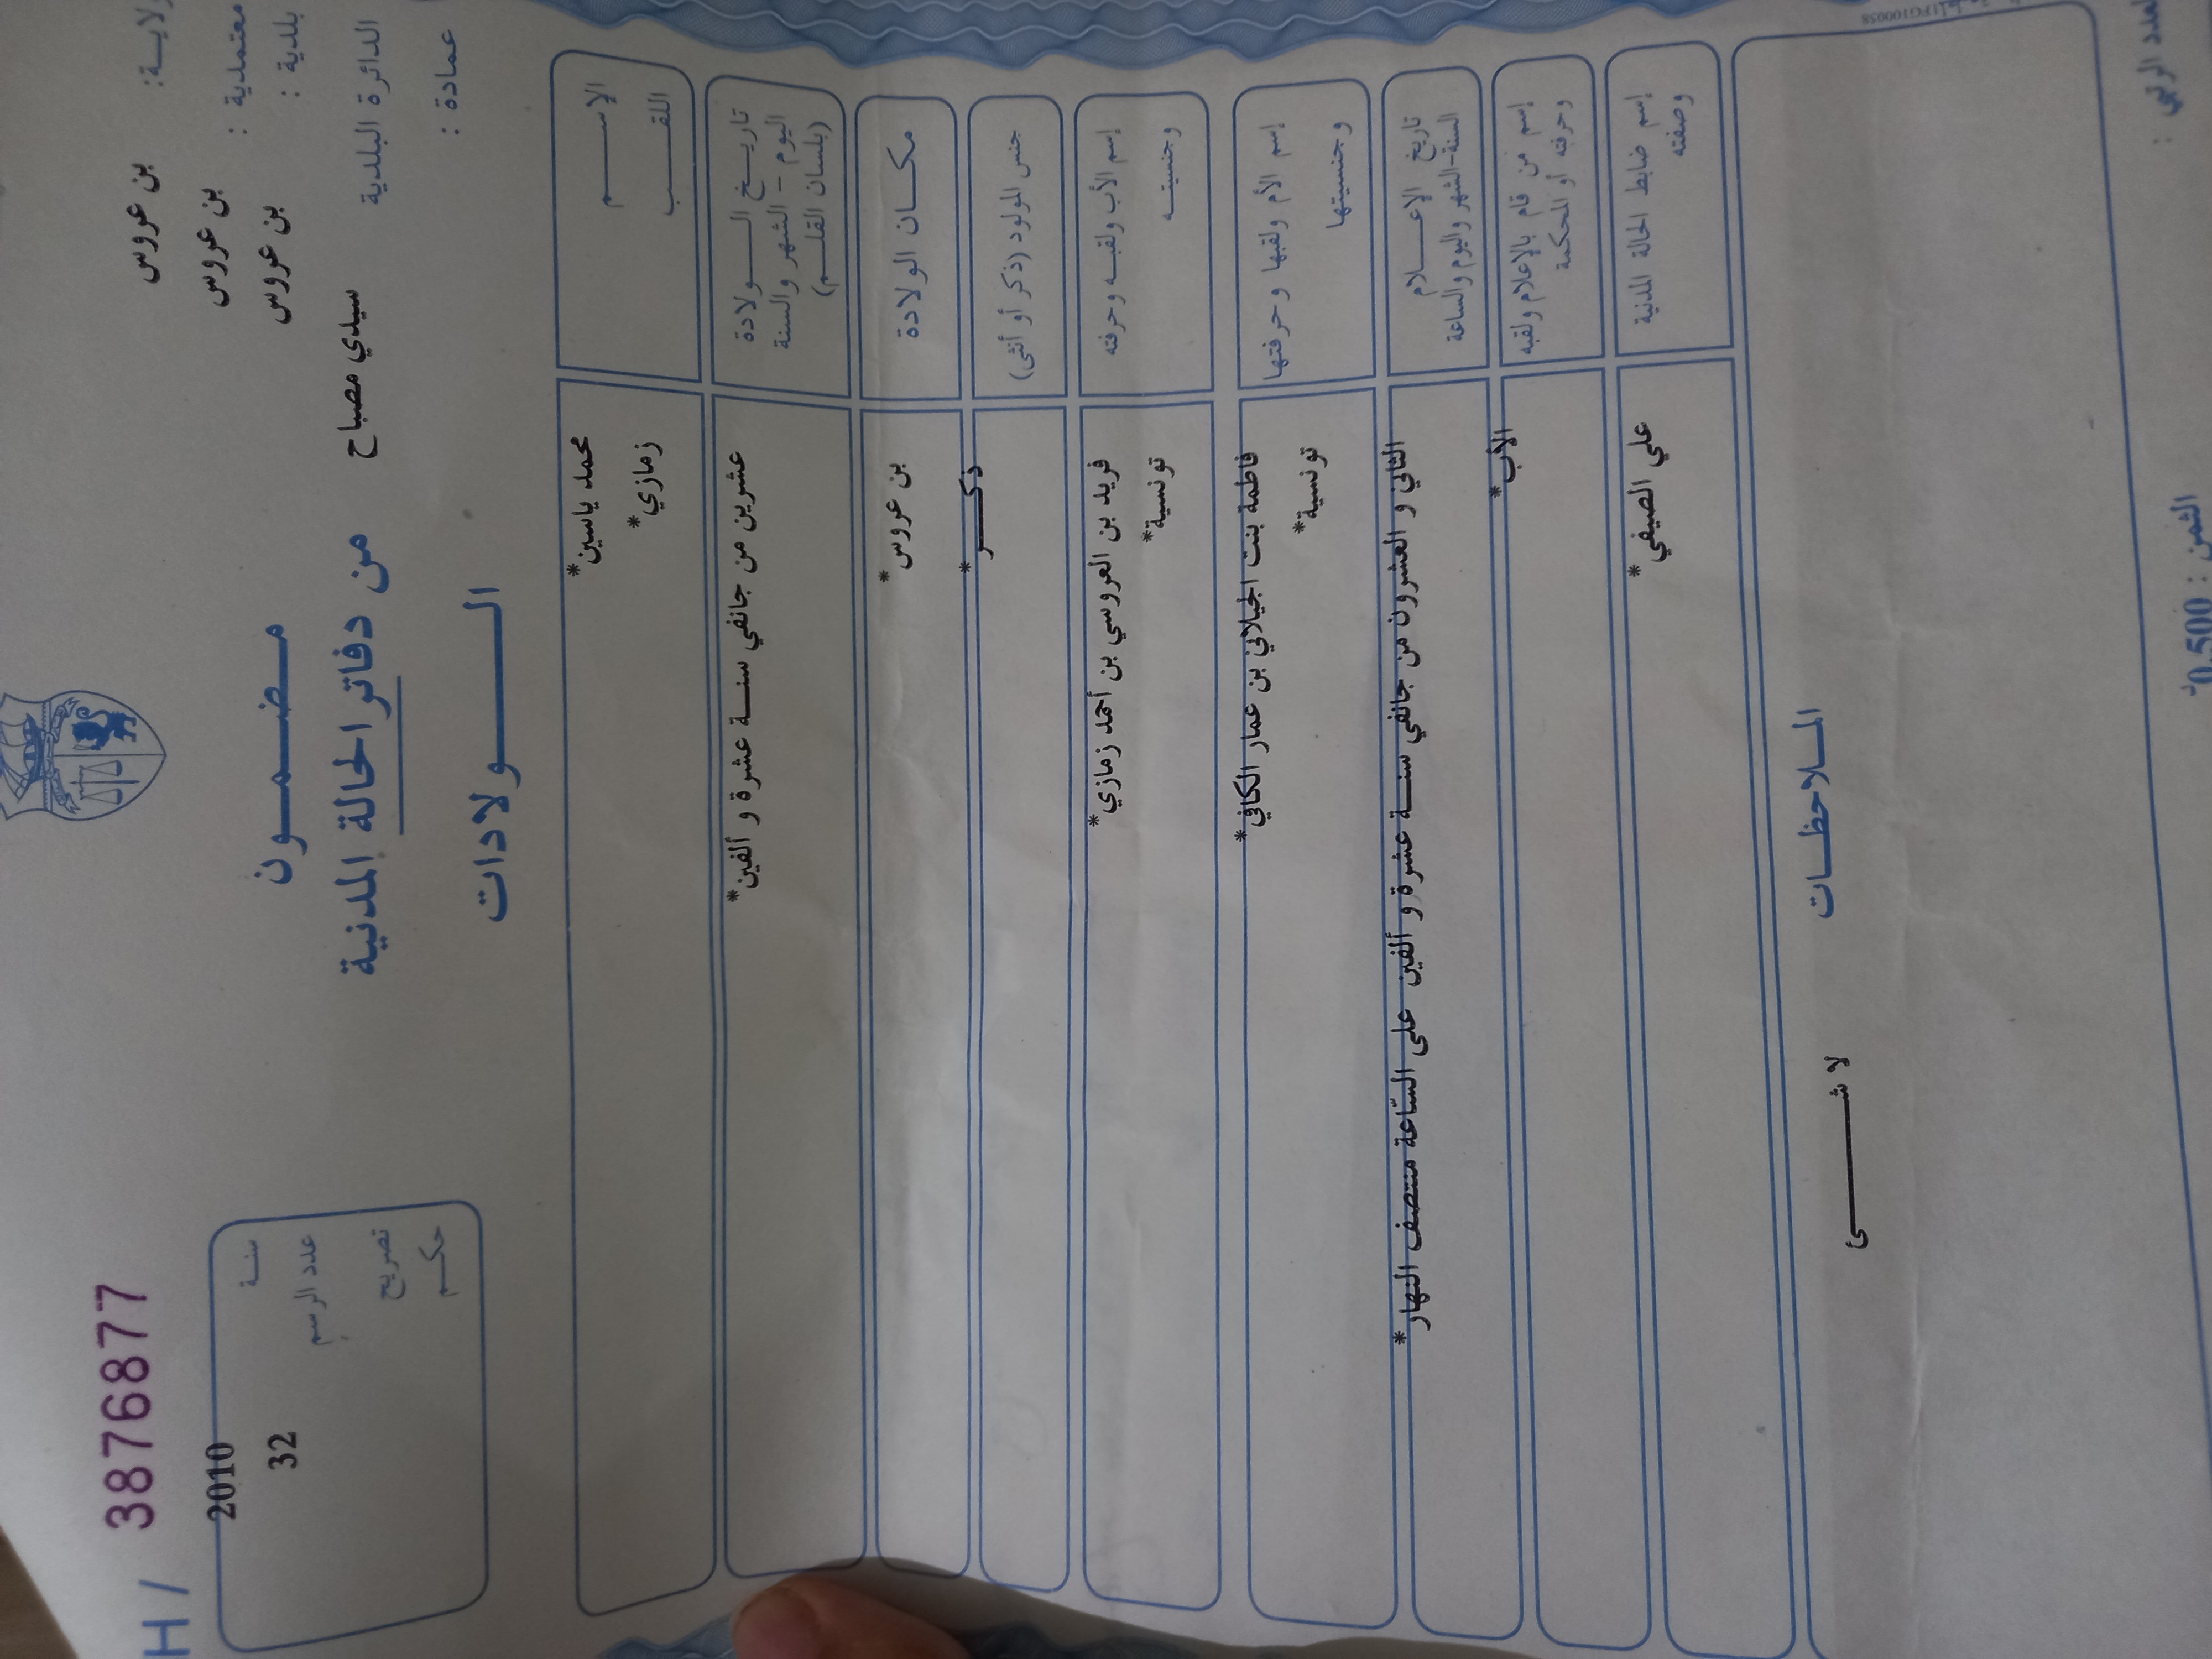 H / 3876877
ولاية: بن عروس
معتمدية : بن عروس
بلدية : بن عروس
الدائرة البلدية سيدي مصباح
عمادة :
مضمون
من دفاتر الحالة المدنية
الولادات
سنة 2010
عدد الرسم 32
تصريح
حكم
الإسم محمد ياسين*
اللقب زمازي*
تاريخ الولادة
اليوم - الشهر والسنة
(بلسان القلم)
عشرين من جانفي سنة عشرة و ألفين*
مكان الولادة بن عروس*
جنس المولود (ذكر أو أنثى) ذكر*
إسم الأب ولقبه وحرفته فريد بن العروسي بن أحمد زمازي*
وجنسيته تونسية*
إسم الأم ولقبها وحرفتها فاطمة بنت الجيلاني بن عمار الكافي*
وجنسيتها تونسية*
تاريخ الإعلام
السنة-الشهر واليوم والساعة
الثاني و العشرون من جانفي سنة عشرة و ألفين على السّاعة منتصف النهار*
إسم من قام بالإعلام ولقبه
وحرفته أو المحكمة
الأب*
إسم ضابط الحالة المدنية
وصفته
علي الصيفي*
الملاحظات
لا شئ
العدد الرتبي :
الثمن : 0,500د